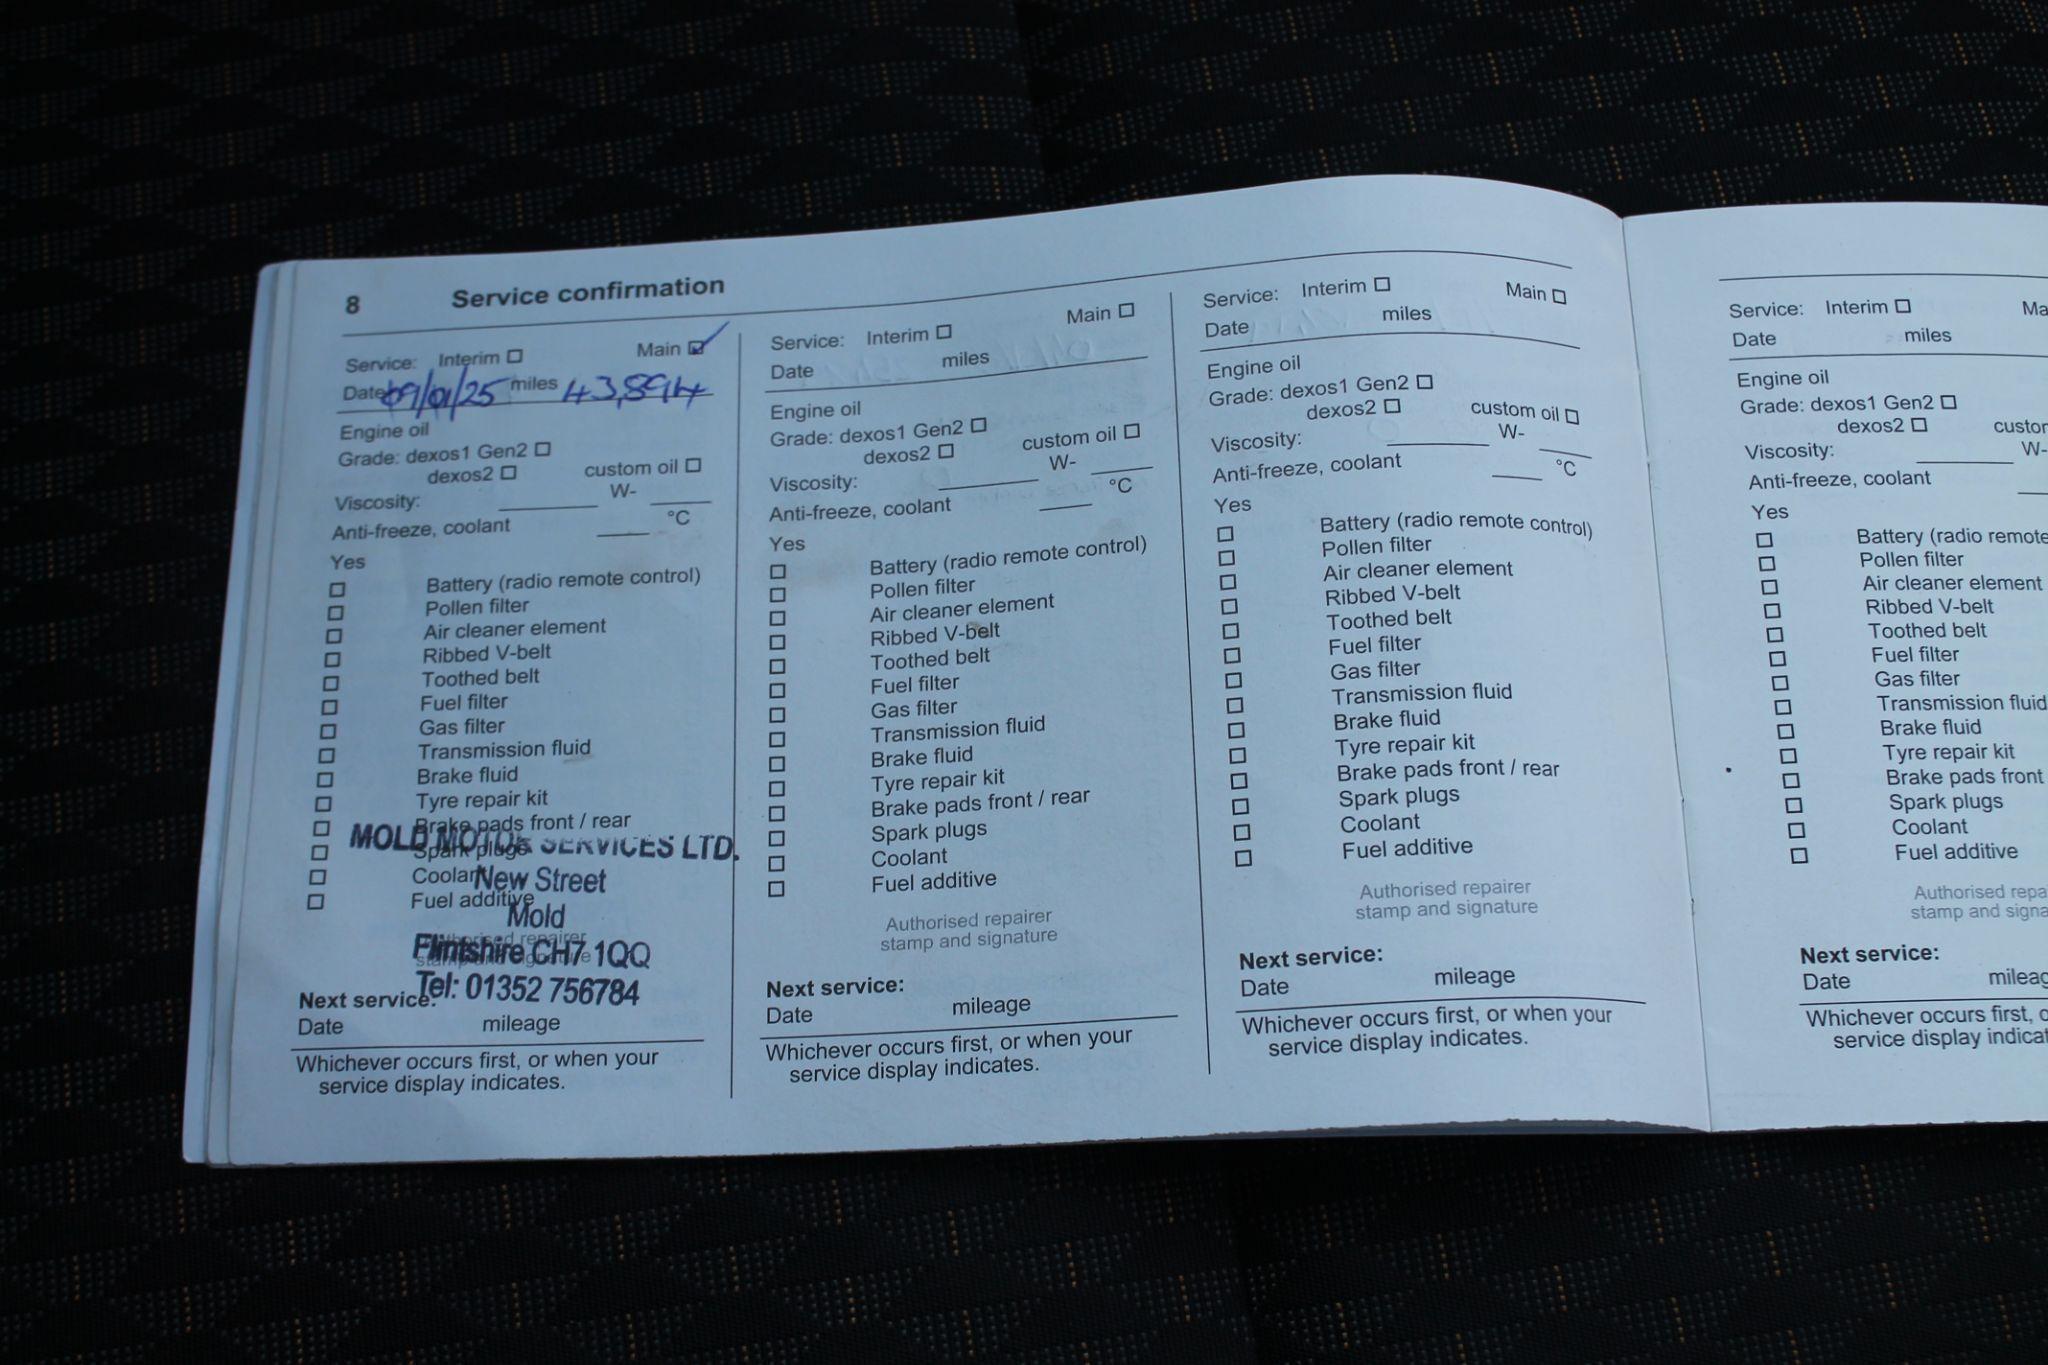 8 Service confirmation
Service: Interim Main
Date 09/01/25 miles 43,894
Engine oil
Grade: dexos1 Gen2
dexos2 custom oil
Viscosity: W-
Anti-freeze, coolant °C
Yes
Battery (radio remote control)
Pollen filter
Air cleaner element
Ribbed V-belt
Toothed belt
Fuel filter
Gas filter
Transmission fluid
Brake fluid
Tyre repair kit
Brake pads front / rear
MOLD MOTOR SERVICES LTD.
Spark plugs
Coolant
New Street
Fuel additive
Mold
Authorised repairer
Flintshire CH7 1QQ
stamp and signature
Tel: 01352 756784
Next service:
Date mileage
Whichever occurs first, or when your
service display indicates.
Service: Interim Main
Date miles
Engine oil
Grade: dexos1 Gen2
dexos2 custom oil
Viscosity: W-
Anti-freeze, coolant °C
Yes
Battery (radio remote control)
Pollen filter
Air cleaner element
Ribbed V-belt
Toothed belt
Fuel filter
Gas filter
Transmission fluid
Brake fluid
Tyre repair kit
Brake pads front / rear
Spark plugs
Coolant
Fuel additive
Authorised repairer
stamp and signature
Next service:
Date mileage
Whichever occurs first, or when your
service display indicates.
Service: Interim Main
Date miles
Engine oil
Grade: dexos1 Gen2
dexos2 custom oil
Viscosity: W-
Anti-freeze, coolant °C
Yes
Battery (radio remote control)
Pollen filter
Air cleaner element
Ribbed V-belt
Toothed belt
Fuel filter
Gas filter
Transmission fluid
Brake fluid
Tyre repair kit
Brake pads front / rear
Spark plugs
Coolant
Fuel additive
Authorised repairer
stamp and signature
Next service:
Date mileage
Whichever occurs first, or when your
service display indicates.
Service: Interim Ma
Date miles
Engine oil
Grade: dexos1 Gen2
dexos2 custor
Viscosity: W-
Anti-freeze, coolant
Yes
Battery (radio remote
Pollen filter
Air cleaner element
Ribbed V-belt
Toothed belt
Fuel filter
Gas filter
Transmission fluid
Brake fluid
Tyre repair kit
Brake pads front
Spark plugs
Coolant
Fuel additive
Authorised repa
stamp and signa
Next service:
Date mileag
Whichever occurs first, o
service display indicat